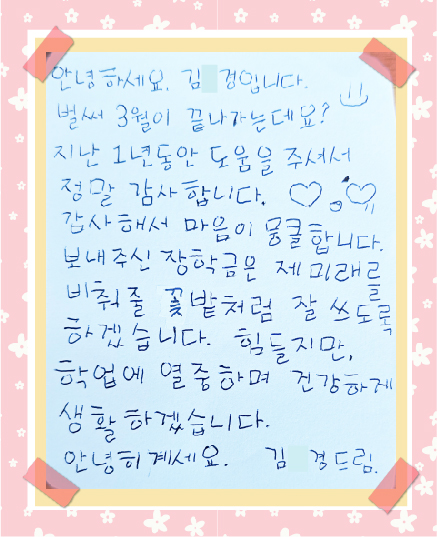 안녕하세요. 김 경입니다.
벌써 3월이 끝나가는데요?
지난 1년동안 도움을 주셔서
정말 감사합니다.
감사해서 마음이 뭉클합니다.
보내주신 장학금은 제 미래를
비춰줄 꽃밭처럼 잘 쓰도록
하겠습니다. 힘들지만,
학업에 열중하며 건강하게
생활하겠습니다.
안녕히계세요. 김 경드림.